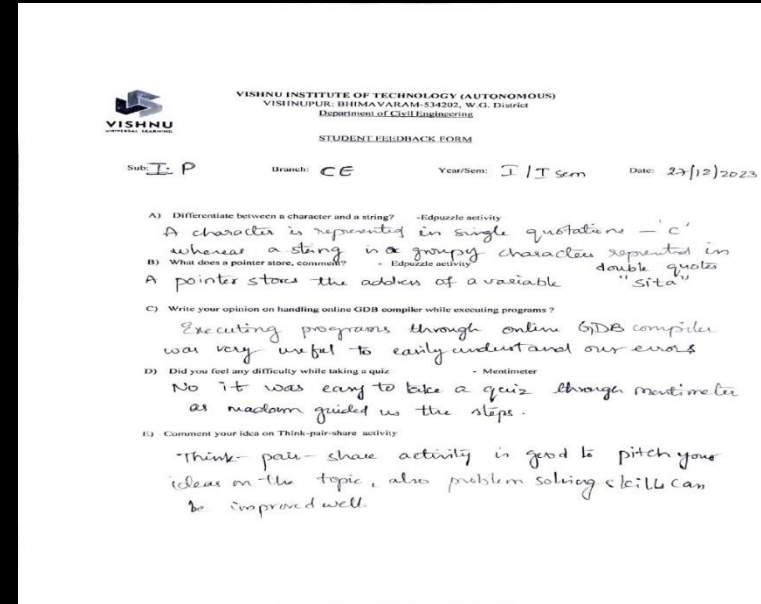 VISHNU
UNIVERSAL LEARNING
VISHNU INSTITUTE OF TECHNOLOGY (AUTONOMOUS)
VISHNUPUR: BHIMAVARAM-534202, W.G. District
Department of Civil Engineering
STUDENT FEEDBACK FORM
Sub: I. P Branch: CE Year/Sem: I / I sem Date: 27/12/2023
A) Differentiate between a character and a string? -Edpuzzle activity
A character is represented in single quotations – 'c'
whereas a string is a group of characters represented in
double quotes
B) What does a pointer store, comment? - Edpuzzle activity
A pointer stores the address of a variable "Sita"
C) Write your opinion on handling online GDB compiler while executing programs ?
Executing programs through online GDB compiler
was very useful to easily understand our errors
D) Did you feel any difficulty while taking a quiz - Mentimeter
No it was easy to take a quiz through mentimeter
as madam guided us the steps.
E) Comment your idea on Think-pair-share activity
Think- pair- share activity is good to pitch your
ideas on the topic, also problem solving skills can
be improved well.